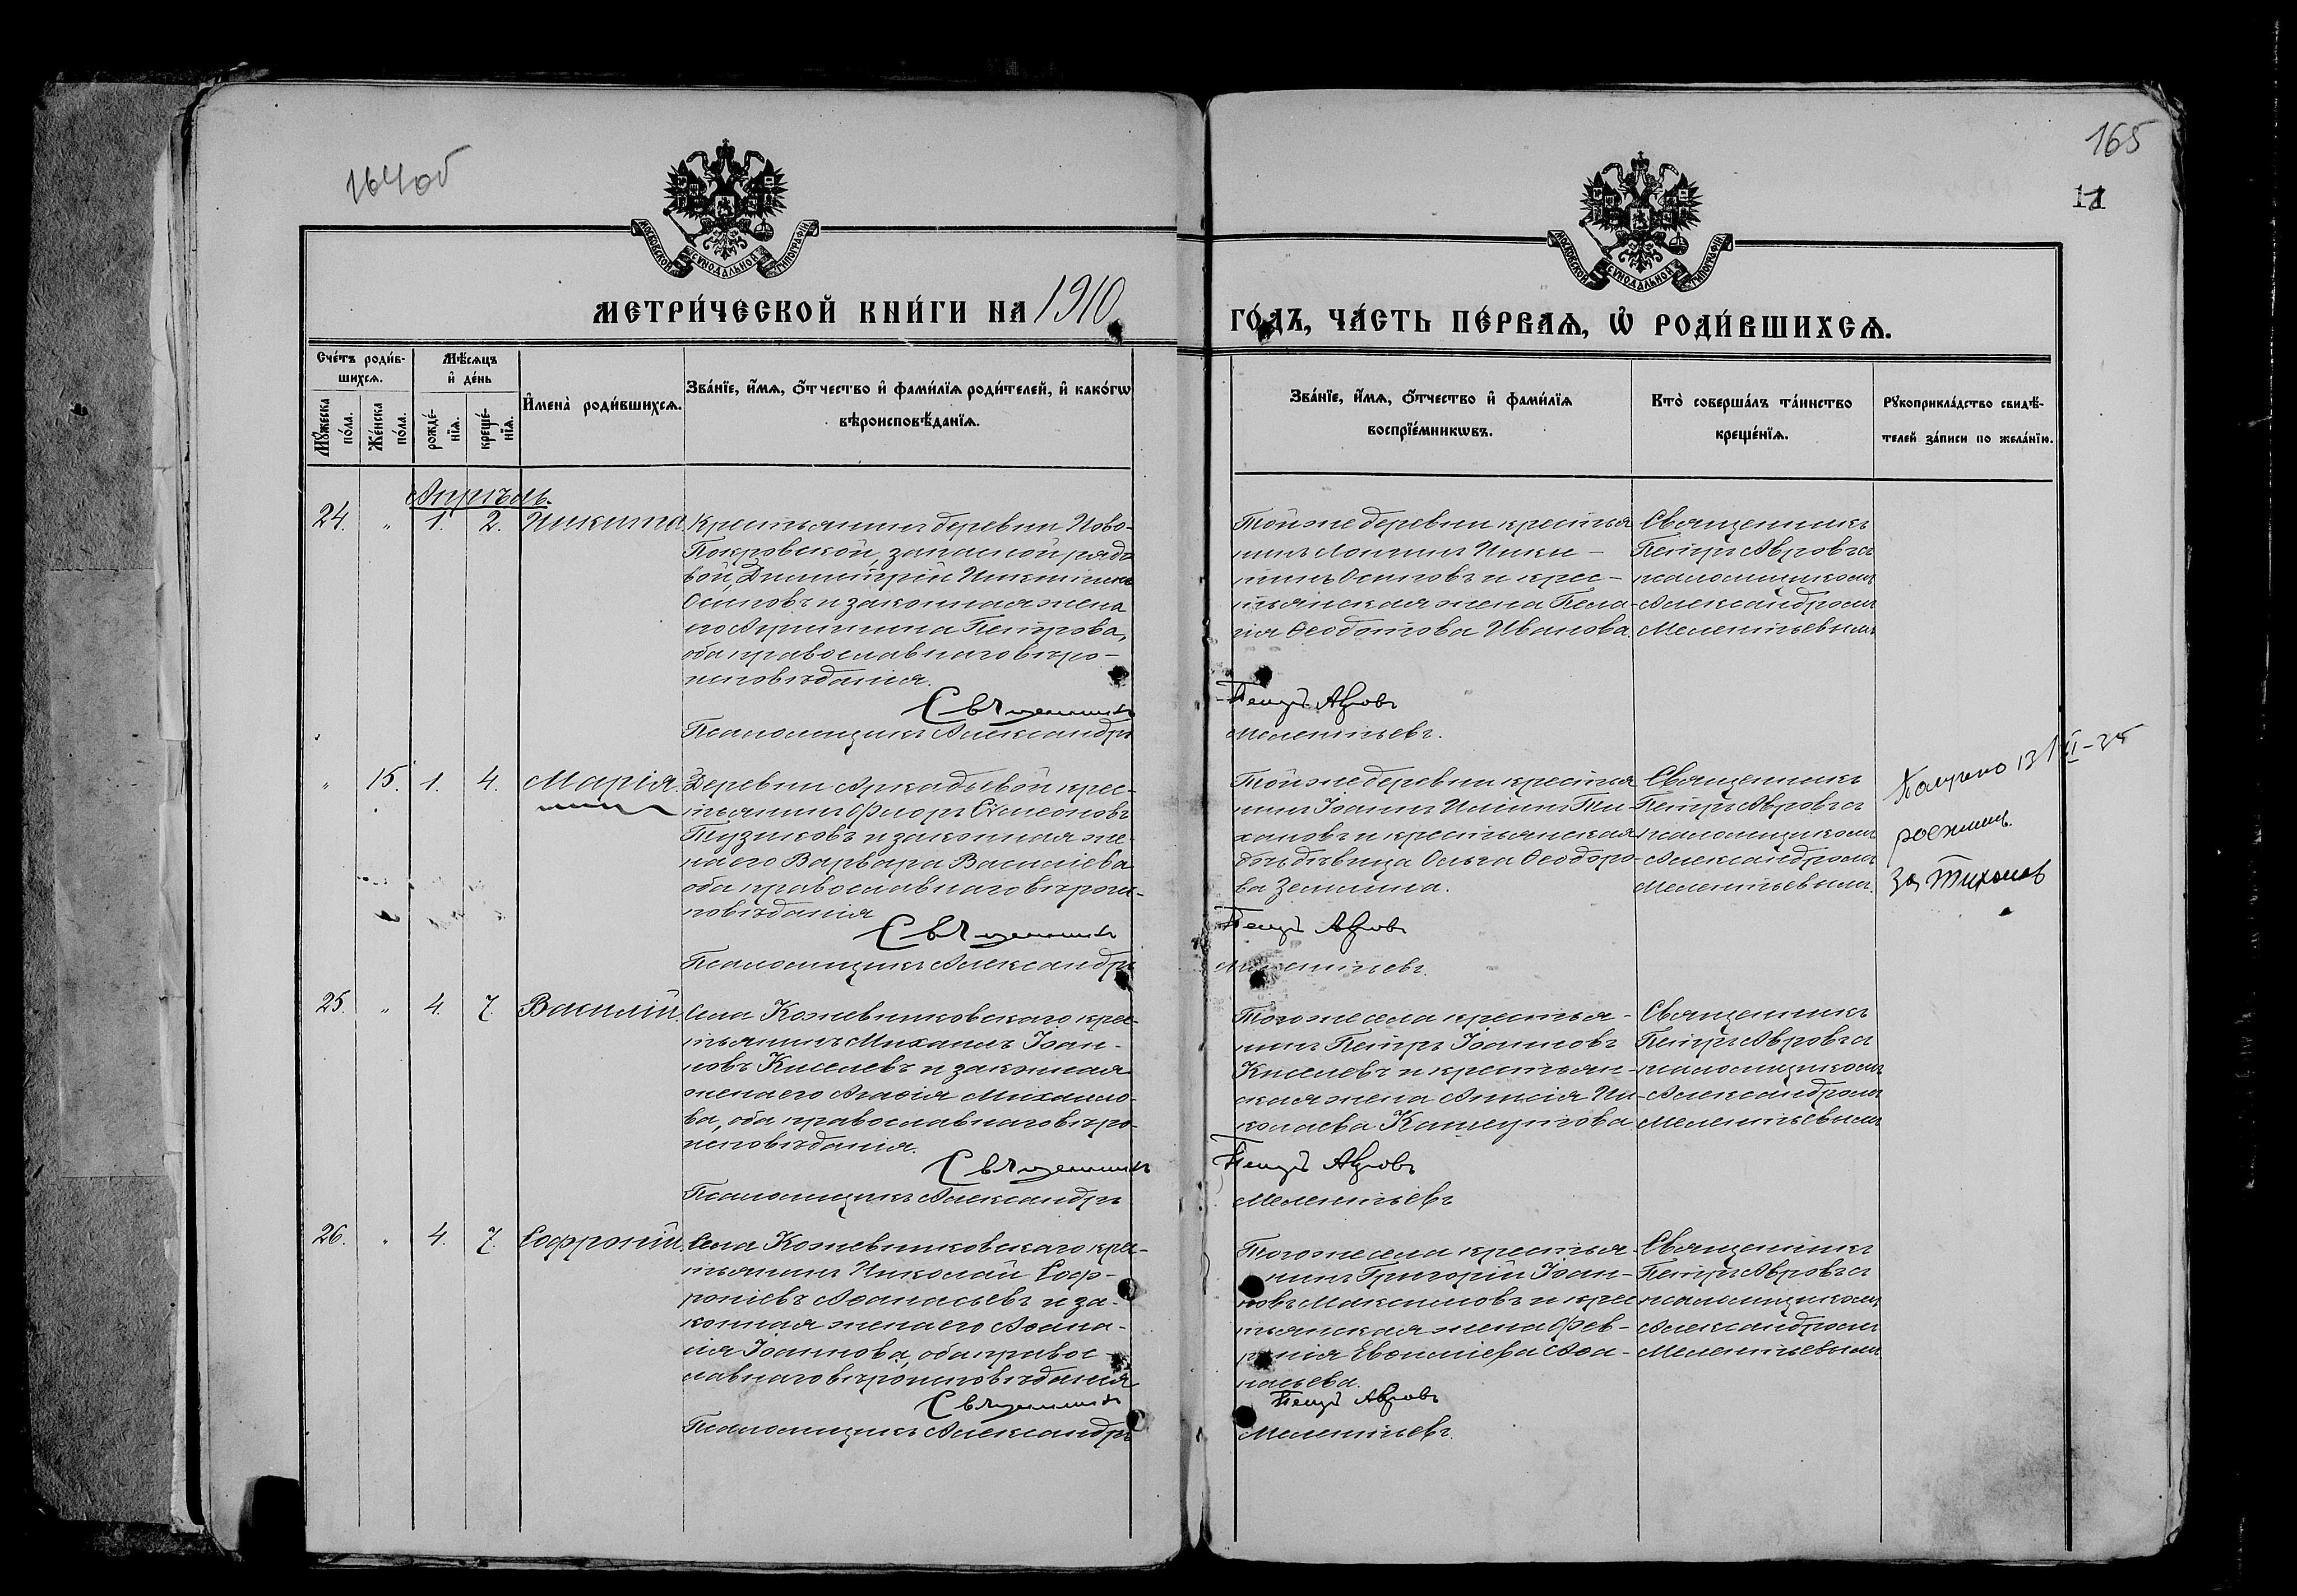 164об
165
11
МОСКОВСКОЙ СУНОДАЛЬНОЙ ТИПОГРАФІИ
МОСКОВСКОЙ СУНОДАЛЬНОЙ ТИПОГРАФІИ
МЕТРИ́ЧЕСКОЙ КНИ́ГИ НА 1910
ГО́ДЪ, ЧА́СТЬ ПЕ́РВАѦ, Ѡ РОДИ́ВШИХСѦ.
Сче́тъ роди́в-
шихсѧ.
Мѣ́сѧцъ
и҆ де́нь
Мꙋ́жеска по́ла.
Же́нска по́ла.
рожде́-
нїѧ.
креще́-
нїѧ.
И҆мена̀ роди́вшихсѧ.
Зва́нїе, и҆́мѧ, ѻ҆́тчество и҆ фами́лїѧ роди́телей, и҆ како́гѡ
вѣроисповѣ́данїѧ.
Зва́нїе, и҆́мѧ, ѻ҆́тчество и҆ фами́лїѧ
воспрїе́мникѡвъ.
Кто̀ соверша́лъ та́инство
креще́нїѧ.
Рꙋкоприкла́дство свидѣ́-
телей за́писи по жела́нїю.
Апрѣль.
24. " 1. 2. Никита.
Крестьянинъ деревни Ново-
Покровской, запасной рядо
вой, Димитрій Никитинъ
Осиповъ и законная жена
его Агриппина Петрова,
оба православнаго вѣро-
исповѣданія.
Священникъ
Псаломщикъ Александръ
Той же деревни крестья
нинъ Логгинъ Ники-
тинъ Осиповъ и крес-
тьянская жена Пела-
гія Ѳеодотова Иванова.
Петръ Авровъ
Мелентьевъ.
Священникъ
Петръ Авровъ съ
псаломщикомъ
Александромъ
Мелентьевымъ
" 15. 1. 4. Марія.
Деревни Аркадьевой крес-
тьянинъ Флоръ Симеоновъ
Тузиковъ и законная же-
на его Варвара Василіева
оба православнаго вѣроис-
повѣданія
Священникъ
Псаломщикъ Александръ
Той же деревни крестья
нинъ Іоаннъ Илiинъ Ти-
хановъ и крестьянская
дочь дѣвица Ольга Ѳеодоро-
ва Землина.
Петръ Авровъ
Мелентьевъ.
Священникъ
Петръ Авровъ съ
псаломщикомъ
Александромъ
Мелентьевымъ.
за Тихонов
25. " 4. 7. Василій.
Села Кожевниковскаго крес-
тьянинъ Михаилъ Іоан-
новъ Киселевъ и законная
жена его Агаѳія Михаило-
ва, оба православнаго вѣро-
исповѣданія.
Священникъ
Псаломщикъ Александръ
Того же села крестья-
нинъ Петръ Іоанновъ
Киселевъ и крестьян-
ская жена Анисія Ни-
колаева
Петръ Авровъ
Мелентьевъ
Священникъ
Петръ Авровъ съ
псаломщикомъ
Александромъ
Мелентьевымъ
26. " 4. 7. Софроній.
Села Кожевниковскаго крес-
тьянинъ Николай Соф-
роніевъ Аѳанасьевъ и за-
конная жена его Аѳана-
сія Іоаннова, оба правос-
лавнаго вѣроисповѣданія
Священникъ
Псаломщикъ Александръ
Того же села крестья-
нинъ Григорій Іоан-
новъ Максимовъ и крес
тьянская жена Фев-
ронія Евѳиміева Аѳа-
насьева.
Петръ Авровъ
Мелентьевъ.
Священникъ
Петръ Авровъ съ
псаломщикомъ
Александромъ
Мелентьевымъ.